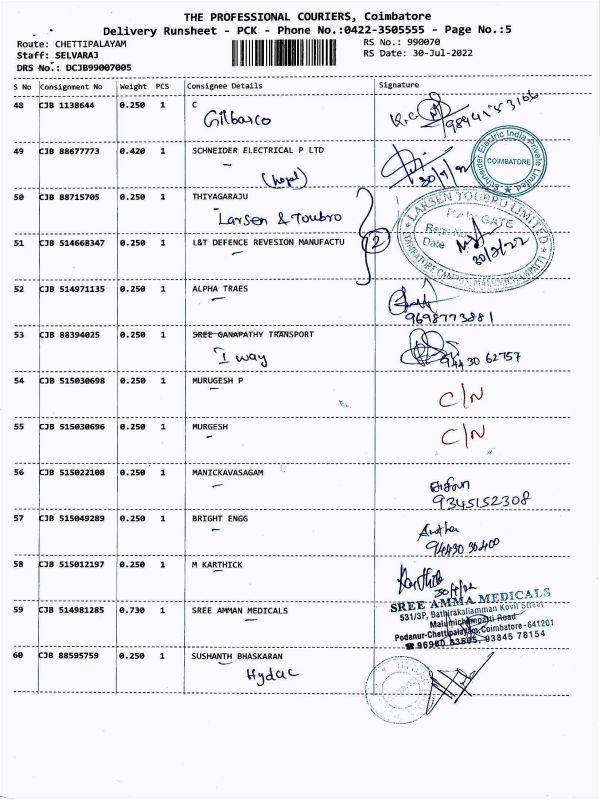 THE PROFESSIONAL COURIERS, Coimbatore
Delivery Runsheet - PCK - Phone No.:0422-3505555 - Page No.:5
Route: CHETTIPALAYAM RS No.: 990070
Staff: SELVARAJ RS Date: 30-Jul-2022
DRS No.: DCJB99007005
S No Consignment No Weight PCS Consignee Details Signature
48 CJB 1138644 0.250 1 C
Gilbarco
49 CJB 88677773 0.420 1 SCHNEIDER ELECTRICAL P LTD
30/7/22
Schneider Electric India Private Limited
COIMBATORE
50 CJB 88715705 0.250 1 THIYAGARAJU
Larsen & Toubro
LARSEN & TOUBRO LIMITED
MAIN GATE
Date 30/7/22
COIMBATORE CAMPUS, MALUMICHAMPATTI
51 CJB 514668347 0.250 1 L&T DEFENCE REVESION MANUFACTU
2
52 CJB 514971135 0.250 1 ALPHA TRAES
9698773881
53 CJB 88394025 0.250 1 SREE GANAPATHY TRANSPORT
I way
94430 62757
54 CJB 515030698 0.250 1 MURUGESH P
C/N
55 CJB 515030696 0.250 1 MURGESH
C/N
56 CJB 515022108 0.250 1 MANICKAVASAGAM
9345152308
57 CJB 515049289 0.250 1 BRIGHT ENGG
94430 30400
58 CJB 515012197 0.250 1 M KARTHICK
Karthick
30/7/22
59 CJB 514981285 0.730 1 SREE AMMAN MEDICALS
SREE AMMA MEDICALS
531/3P, Bathirakaliamman Kovil Street
Malumichampatti Road
Podanur-Chettipalayam, Coimbatore - 641201
93845 78154
60 CJB 88595759 0.250 1 SUSHANTH BHASKARAN
Hydac
HYDAC